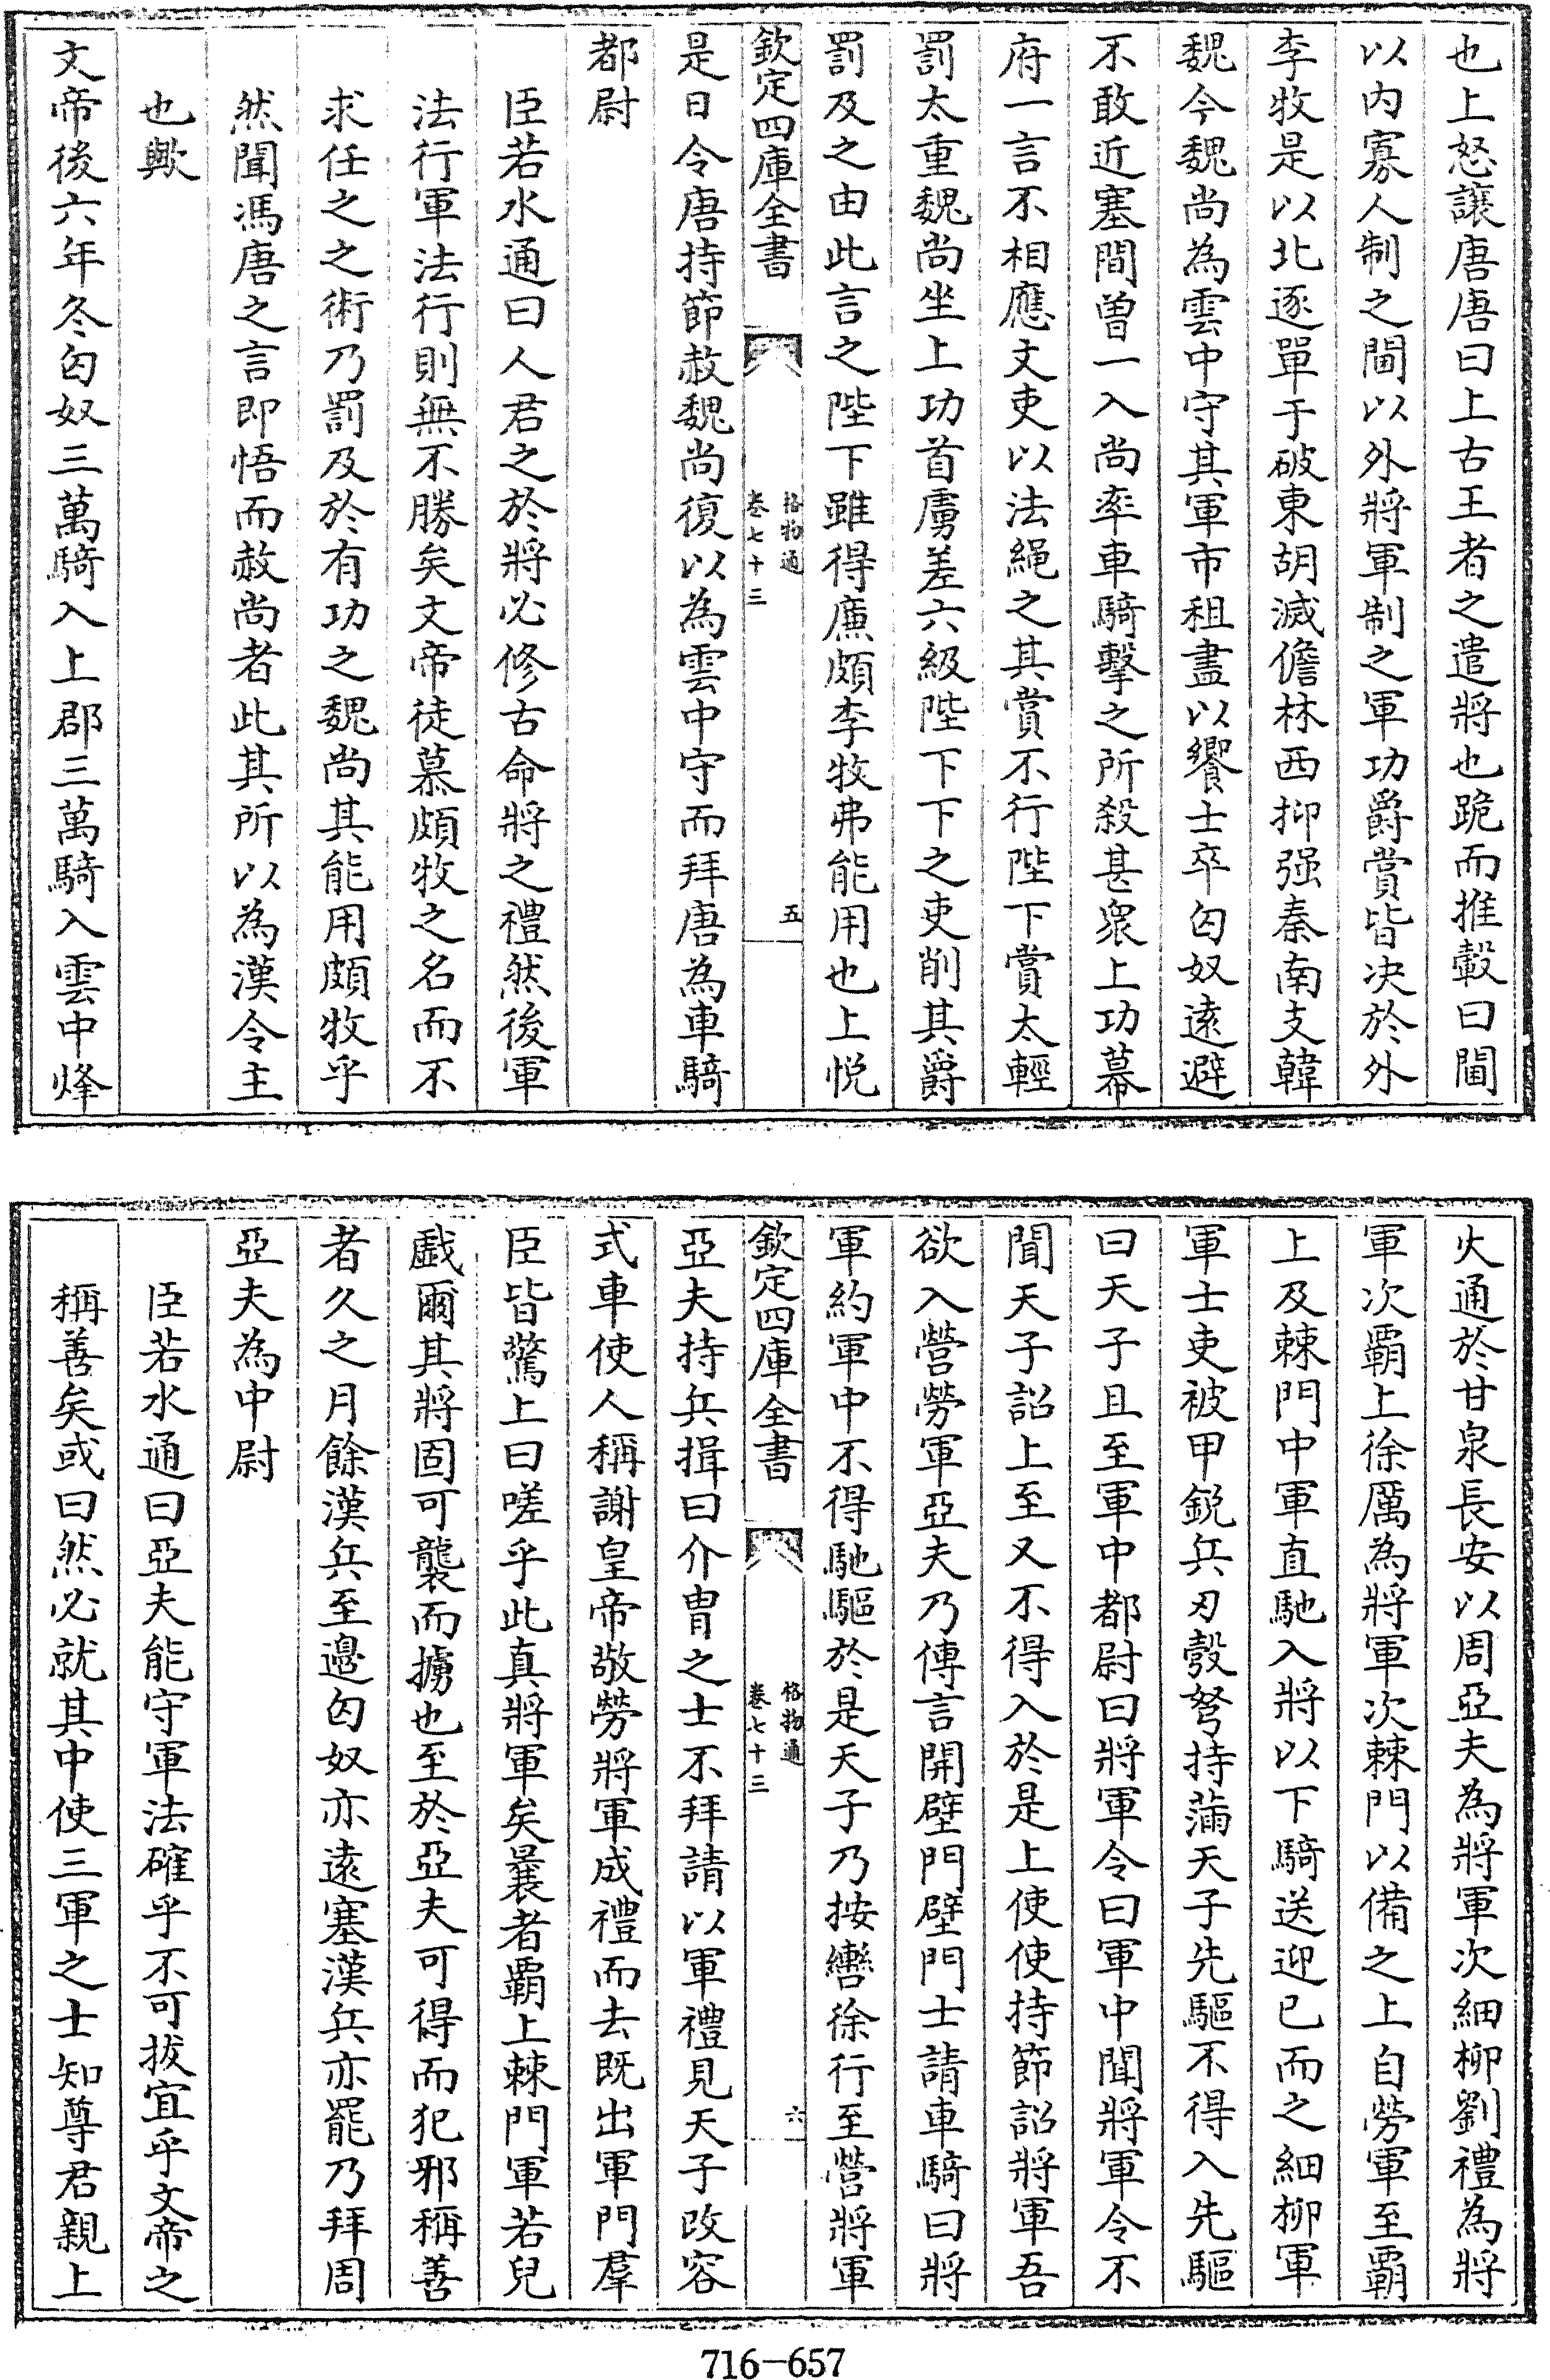 也上怒讓唐唐曰上古王者之遣將也跪而推轂曰閫
以内寡人制之閫以外將軍制之軍功爵賞皆决於外
李牧是以北逐單于破東胡滅儋林西抑强秦南支韓
魏今魏尚為雲中守其軍市租盡以饗士卒匈奴遠避
不敢近塞間曽一入尚率車騎擊之所殺甚衆上功幕
府一言不相應文吏以法繩之其賞不行陛下賞太輕
罰太重魏尚坐上功首虜差六級陛下下之吏削其爵
罰及之由此言之陛下雖得廉頗李牧弗能用也上悦
欽定四庫全書
格物通
卷七十三
五
是日令唐持節赦魏尚復以為雲中守而拜唐為車騎
都尉
臣若水通曰人君之於將必修古命將之禮然後軍
法行軍法行則無不勝矣文帝徒慕頗牧之名而不
求任之之術乃罰及於有功之魏尚其能用頗牧乎
然聞馮唐之言即悟而赦尚者此其所以為漢令主
也歟
文帝後六年冬匈奴三萬騎入上郡三萬騎入雲中烽
火通於甘泉長安以周亞夫為將軍次細柳劉禮為將
軍次覇上徐厲為將軍次棘門以備之上自勞軍至覇
上及棘門中軍直馳入將以下騎送迎已而之細柳軍
軍士吏被甲鋭兵刃彀弩持滿天子先驅不得入先驅
曰天子且至軍中都尉曰將軍令曰軍中聞將軍令不
聞天子詔上至又不得入於是上使使持節詔將軍吾
欲入營勞軍亞夫乃傳言開壁門壁門士請車騎曰將
軍約軍中不得馳驅於是天子乃按轡徐行至營將軍
欽定四庫全書
格物通
卷七十三
六
亞夫持兵揖曰介胄之士不拜請以軍禮見天子改容
式車使人稱謝皇帝敬勞將軍成禮而去既出軍門羣
臣皆驚上曰嗟乎此真將軍矣曩者覇上棘門軍若兒
戲爾其將固可襲而擄也至於亞夫可得而犯邪稱善
者久之月餘漢兵至邉匈奴亦遠塞漢兵亦罷乃拜周
亞夫為中尉
臣若水通曰亞夫能守軍法確乎不可拔宜乎文帝之
稱善矣或曰然必就其中使三軍之士知尊君親上
716-657